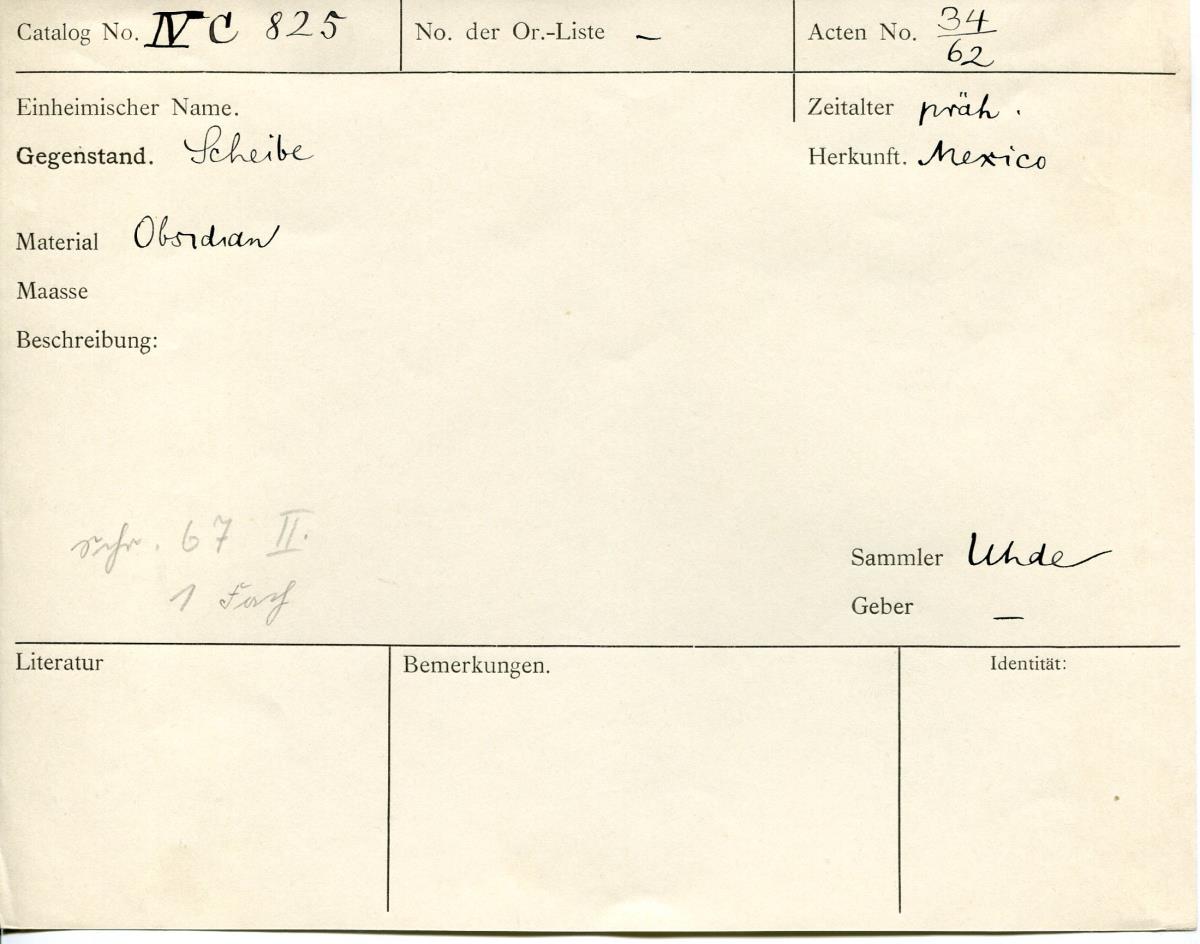 Catalog No. IV C 825 No. der Or.-Liste — Acten No. 34/62
Einheimischer Name. Zeitalter präh.
Gegenstand. Scheibe Herkunft. Mexico
Material Obsidian
Maasse
Beschreibung:
Schr. 67 II.
1 Fach
Sammler Uhde
Geber —
Literatur Bemerkungen. Identität: